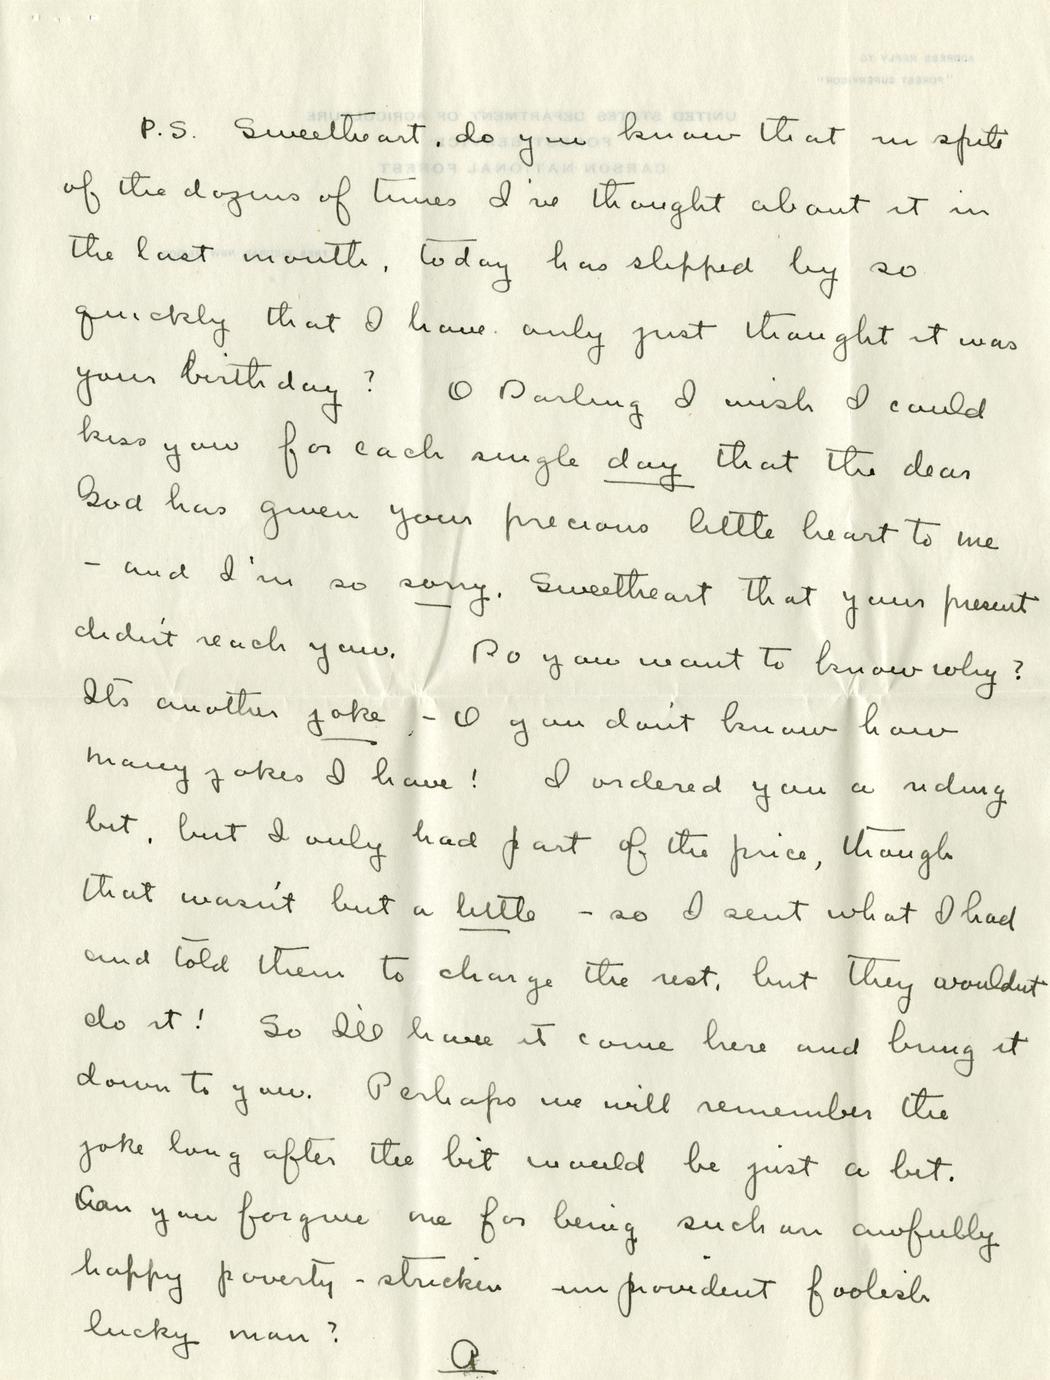 ADDRESS REPLY TO
"FOREST SUPERVISOR"
UNITED STATES DEPARTMENT OF AGRICULTURE
FOREST SERVICE
CARSON NATIONAL FOREST
P.S. Sweetheart, do you know that in spite
of the dozens of times I've thought about it in
the last month, today has slipped by so
quickly that I have only just thought it was
your birthday? O Darling I wish I could
kiss you for each single day that the dear
God has given your precious little heart to me
- and I'm so sorry, Sweetheart that your present
didn't reach you. Do you want to know why?
Its another joke, - O you don't know how
many jokes I have! I ordered you a riding
bit, but I only had part of the price, though
that wasn't but a little - so I sent what I had
and told them to charge the rest, but they wouldn't
do it! So I'll have it come here and bring it
down to you. Perhaps we will remember the
joke long after the bit would be just a bit.
Can you forgive me for being such an awfully
happy poverty-stricken improvident foolish
lucky man?
A